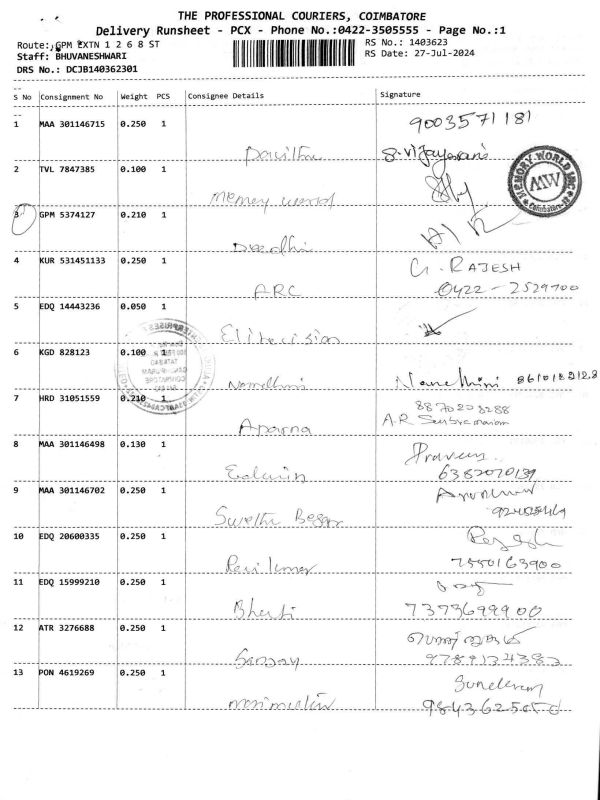 THE PROFESSIONAL COURIERS, COIMBATORE
Delivery Runsheet - PCX - Phone No.:0422-3505555 - Page No.:1
Route: GPM EXTN 1 2 6 8 ST
RS No.: 1403623
Staff: BHUVANESHWARI
RS Date: 27-Jul-2024
DRS No.: DCJB140362301
S No Consignment No Weight PCS Consignee Details Signature
1 MAA 301146715 0.250 1 9003571181
S. Vijayarani
2 TVL 7847385 0.100 1
memory world
MEMORY WORLD INC
MW
Coimbatore
3 GPM 5374127 0.210 1
4 KUR 531451133 0.250 1 G. RAJESH
ARC 0422-2529700
5 EDQ 14443236 0.050 1
6 KGD 828123 0.100 1
Nandhini Nandhini
7 HRD 31051559 0.210 1 8870208288
Aparna A.R Subramaniam
8 MAA 301146498 0.130 1 Praveen
6382070139
9 MAA 301146702 0.250 1
Swetha
10 EDQ 20600335 0.250 1
Ravi kumar 7550163900
11 EDQ 15999210 0.250 1
Bharti 7373699900
12 ATR 3276688 0.250 1
Sanjay 9789134383
13 PON 4619269 0.250 1 Sundaram